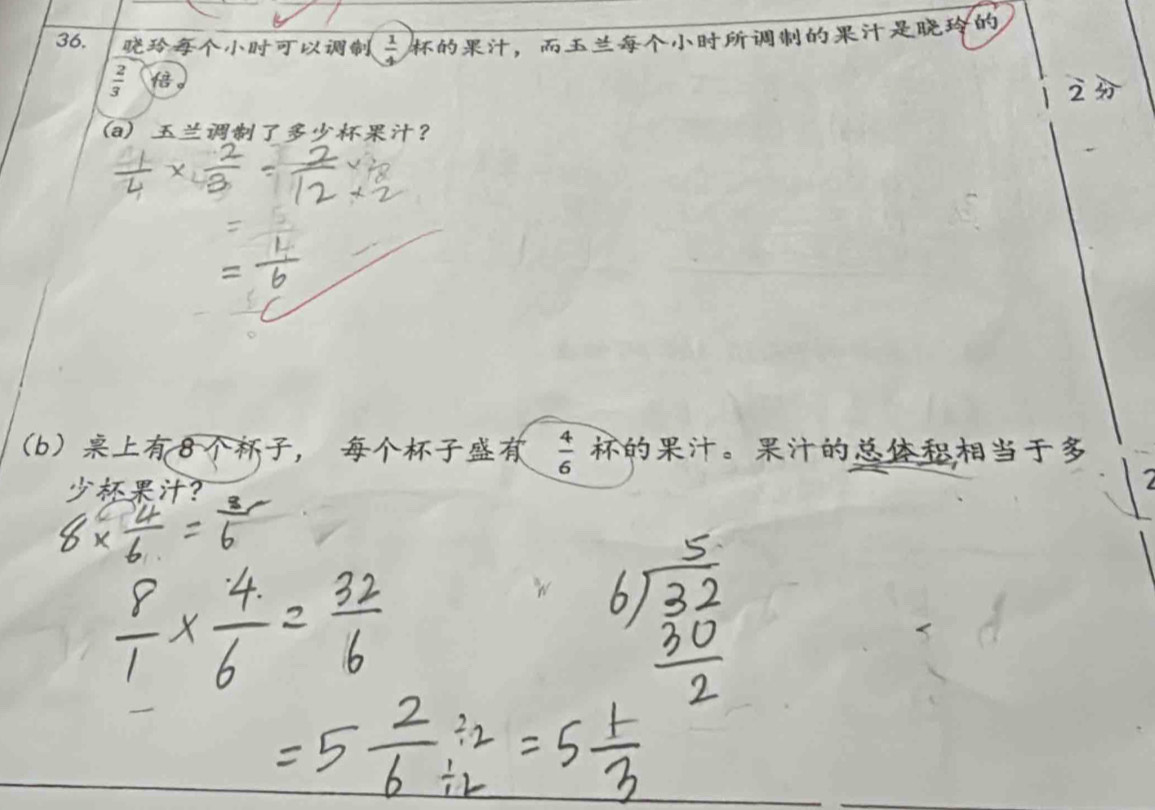 36. 晓玲每个小时可以调制 1/4 杯的果汁，而玉兰每个小时所调制的果汁是晓玲的
2/3 倍。
2分
(a) 玉兰调制了多少杯果汁？
1/4 × 2/3 = 2/12
=
= 1/6
(b) 桌上有8个杯子， 每个杯子盛有 4/6 杯的果汁。果汁的总体积相当于多
少杯果汁？
2
8 × 4/6 = 8/6
8/1 × 4/6 = 32/6
5
6)32
30
2
= 5 2/6 ÷2 ÷2 = 5 1/3